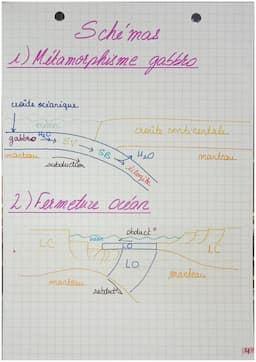 Schémas
1) Métamorphisme gabbro
croûte océanique
croûte continentale
gabbro H₂O → SV → SB → H₂O
manteau
manteau
subduction
éclogite
2) Fermeture océan
obduct°
LC
LO
LC
LO
manteau
manteau
subduct°